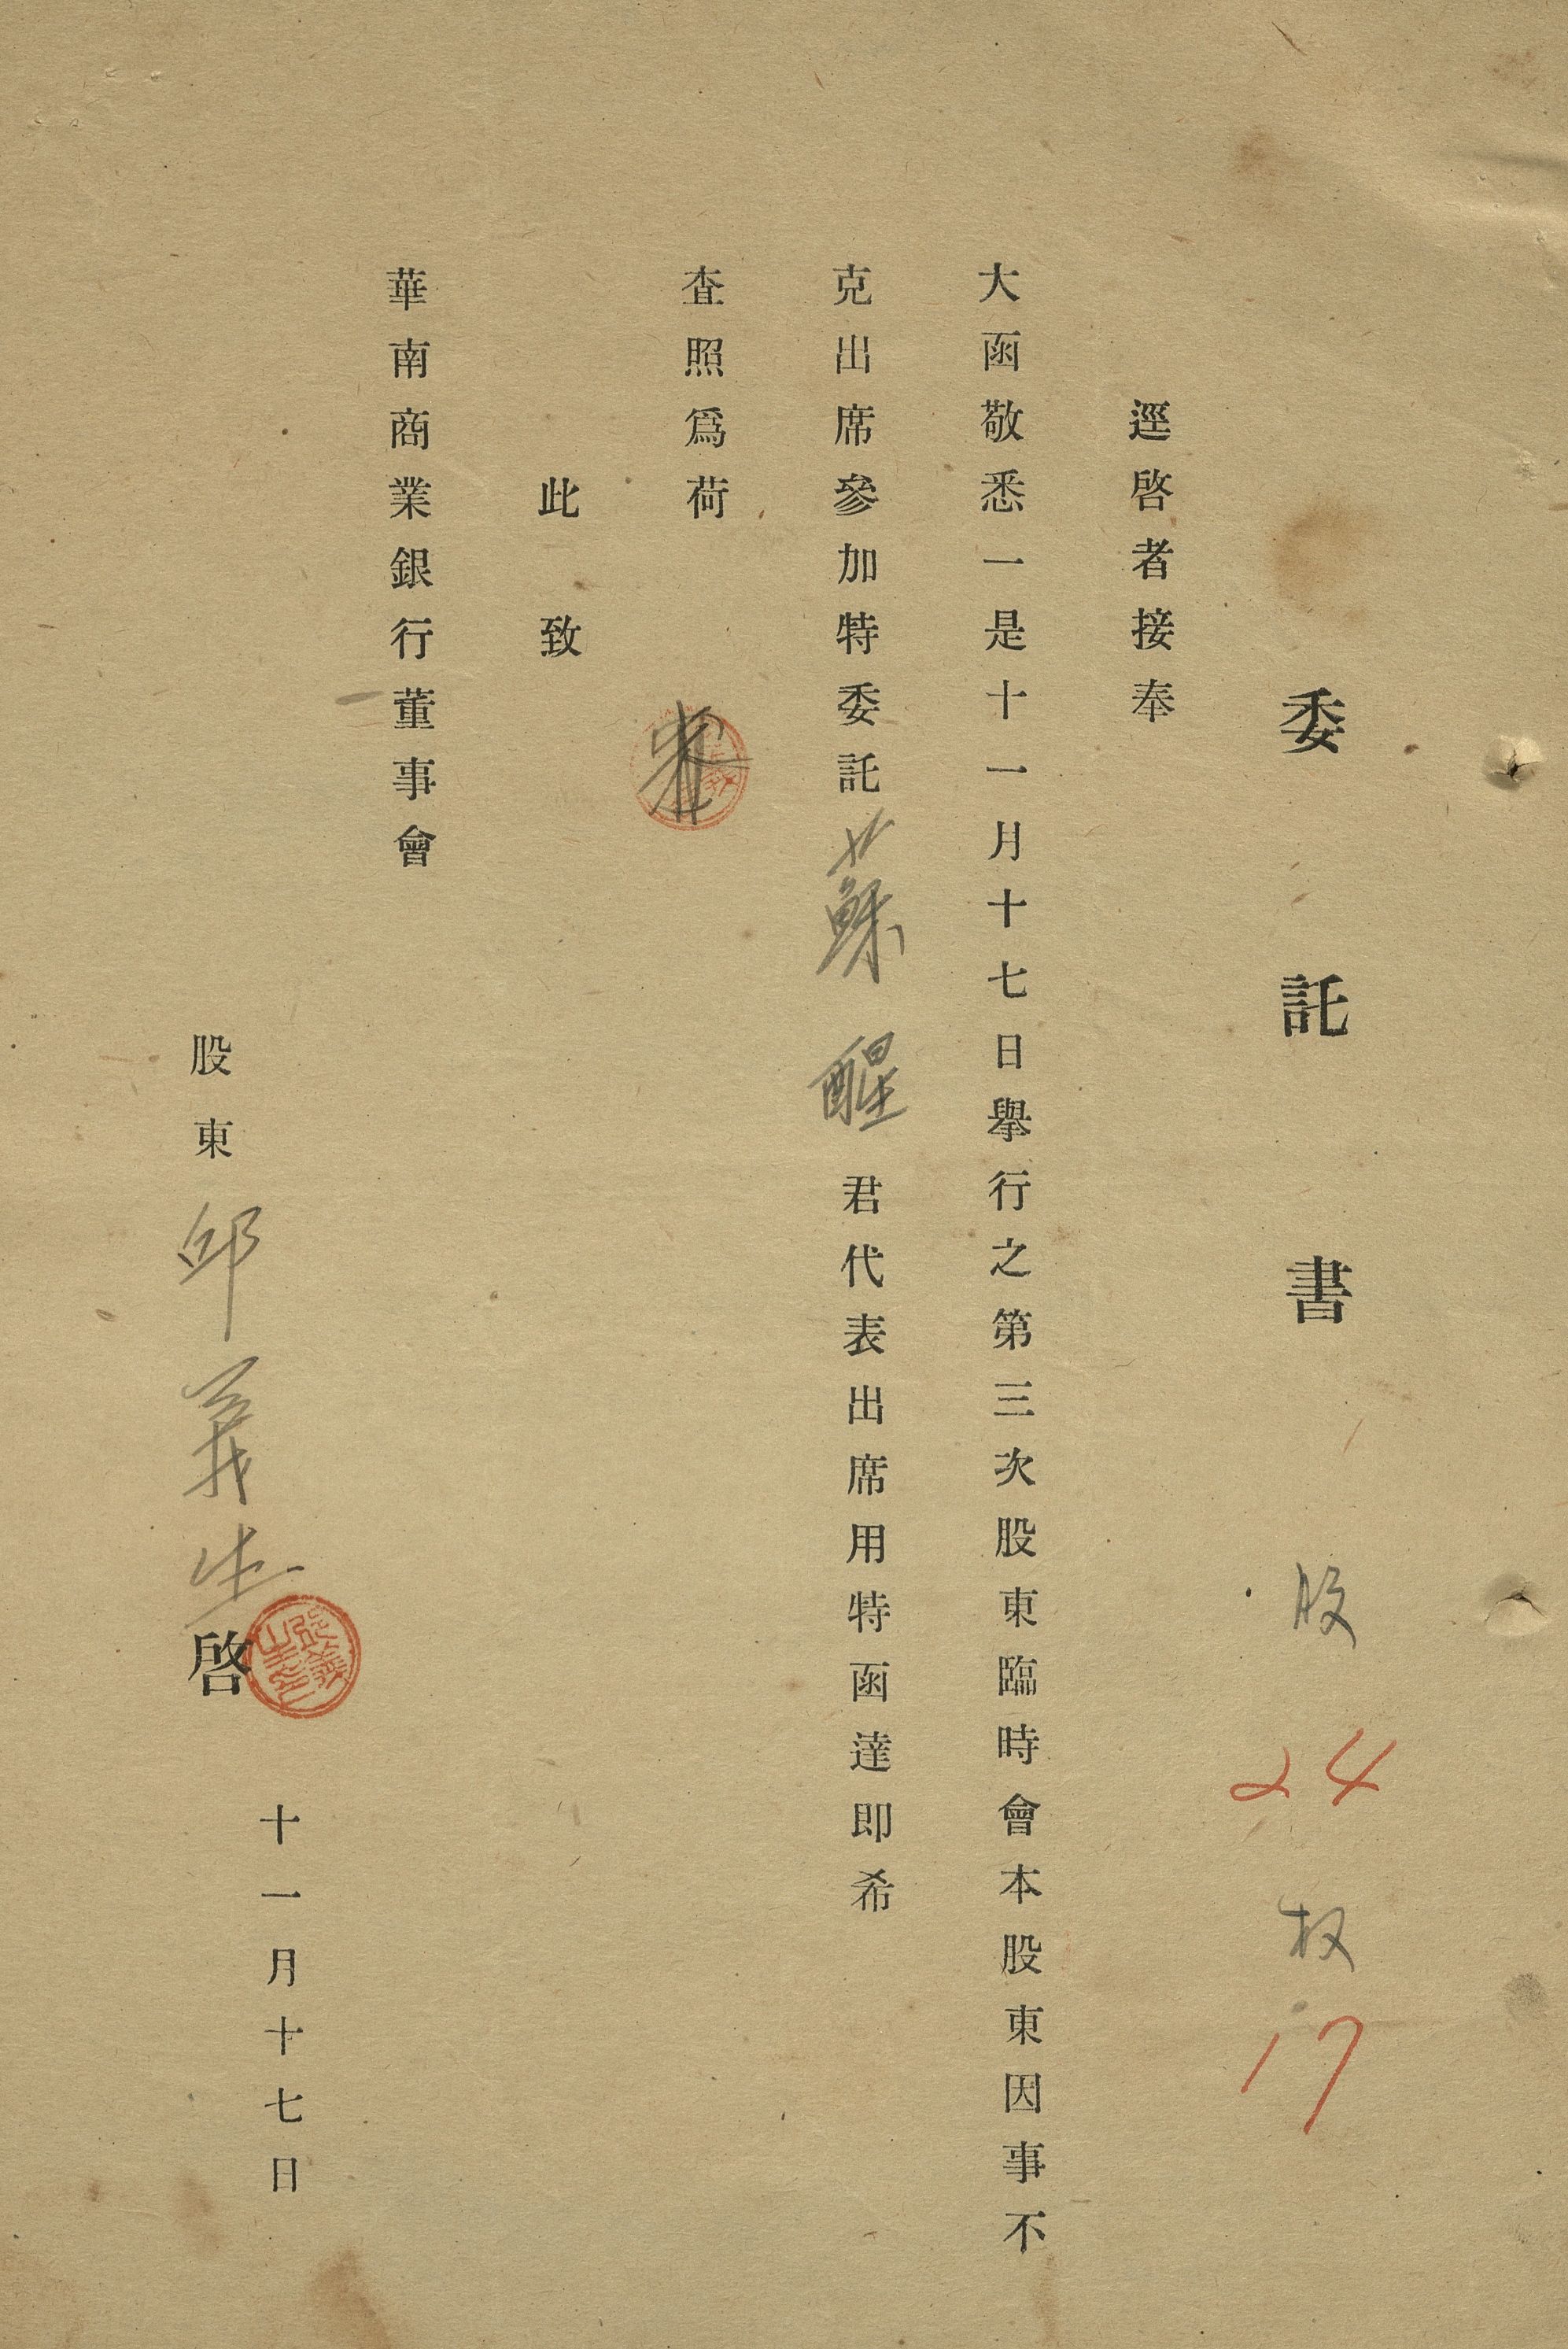 委託書 股24权17
逕啓者接奉
大函敬悉一是十一月十七日舉行之第三次股東臨時會本股東因事不
克出席參加特委託蘇醒君代表出席用特函達即希
査照爲荷
此致
華南商業銀行董事會
十一月十七日
股東邱義生啓